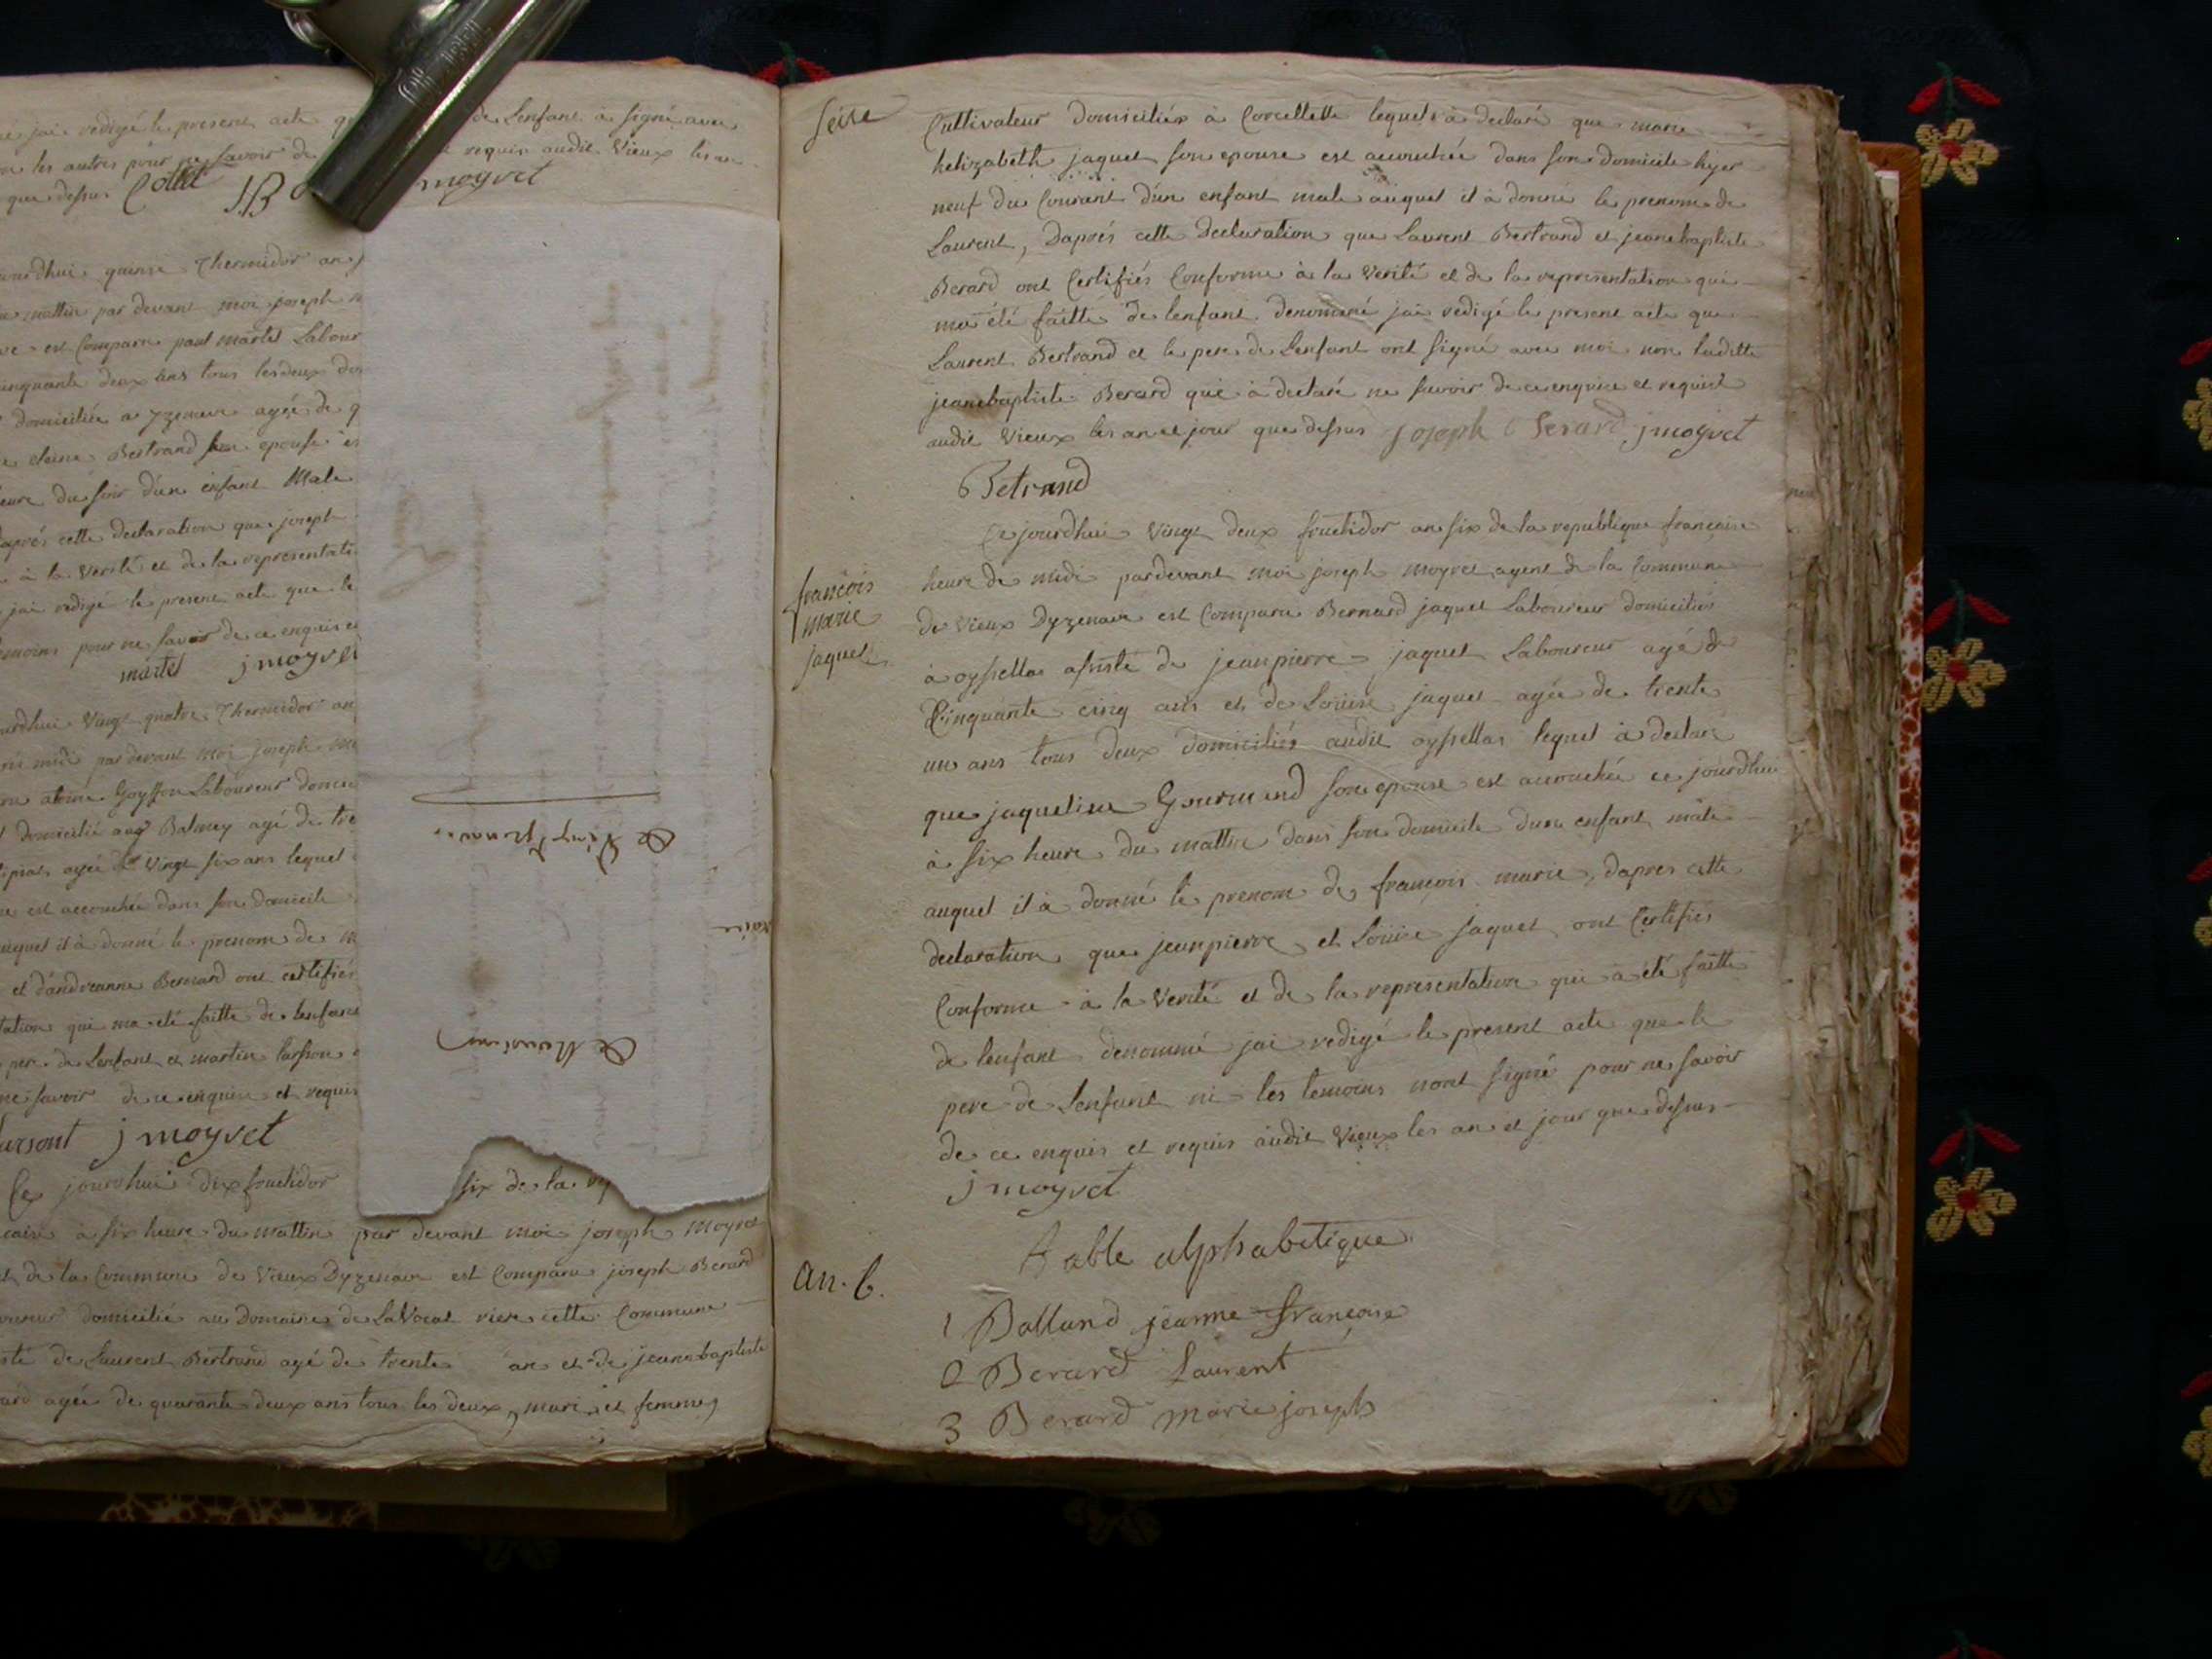 jai redigé le present acte
de Lenfant à signé avec
les autres pour ne savoir de
requis audit Vieux les an
que dessus Collet JB
moyret
quinse Thermidor an
mattin par devant moi joseph
est Comparu paul martel Labour
cinquante deux ans tous les deux
domiciliée a yzenave agée de
claine Bertrand son epouse
heure du soir dun enfant Male
après cette declaration que joseph
à la Verité et de la representati
jai redigé le present acte que le
temoins pour ne savoir de ce enquis et
martel j moyret
Vingt quatre Thermidor an
midi par devant moi joseph
Goyffon Laboureur
domicilié aux Balmey agé de
agée de Vingt six ans lequel
est accouchée dans son domicile
auquel il à donné le prenom de
et dandreanne Bernard ont certifiés
qui ma été faitte de lenfant
pere de Lenfant et martin larsson
ne savoir de ce enquis et requis
larsont j moyret
Ce jourdhui dix fructidor
six de la
à six heure du mattin par devant moi joseph Moyret
de la Commune de Vieux Dyzenave est Comparu joseph Berard
domicilié au domaine de LaVocat riere cette Commune
de Laurent Bertrand agé de trente an et de jeannebaptiste
agée de quarante deux ans tous les deux, mari et femme,
seise
Cultivateur domiciliés à Corcellette lequel à declaré que marie
helizabeth jaquet son epouse est accouchée dans son domicile hyer
neuf du Courant dun enfant male auquel il à donné le prenom de
Laurent, Daprés cette declaration que Laurent Bertrand et jeanebaptiste
Berard ont Certifiés Conforme à la Verité et de la representation qui
ma été faitte de lenfant denommé jai redigé le present acte que
Laurent Bertrand et le pere de Lenfant ont signé avec moi non laditte
jeanebaptiste Berard qui à declaré ne savoir de ce enquise et requise
audit Vieux les an et jour que dessus joseph Berard j moyret
Betrand
Ce jourdhui Vingt deux fructidor an six de la republique francaise
françois
marie
jaquet
heure de midi pardevant moi joseph moyret agent de la Commune
de Vieux Dyzenave est Comparu Bernard jaquet Laboureur domiciliés
à oyssellas assisté de jeanpierre jaquet Laboureur agé de
Cinquante cinq ans et de Louise jaquet agée de trente
un ans tous deux domiciliés audit oyssellas lequel à declaré
que jaqueline Gourmand son epouse est accouchée ce jourdhui
à six heure du mattin dans son domicile dun enfant mâle
auquel il à donné le prenom de francois marie, dapres cette
declaration que jeanpierre et Louise jaquet ont Certifiés
Conforme à la Verité et de la representation qui à été faitte
de lenfant denommé jai redigé le present acte que le
pere de Lenfant ni les temoins nont signé pour ne savoir
de ce enquis et requis audit Vieux les an et jour que dessus
j moyret
Table alphabetique
an. 6.
1 Balland jeanne francoise
2 Berard Laurent
3 Berard Marie joseph